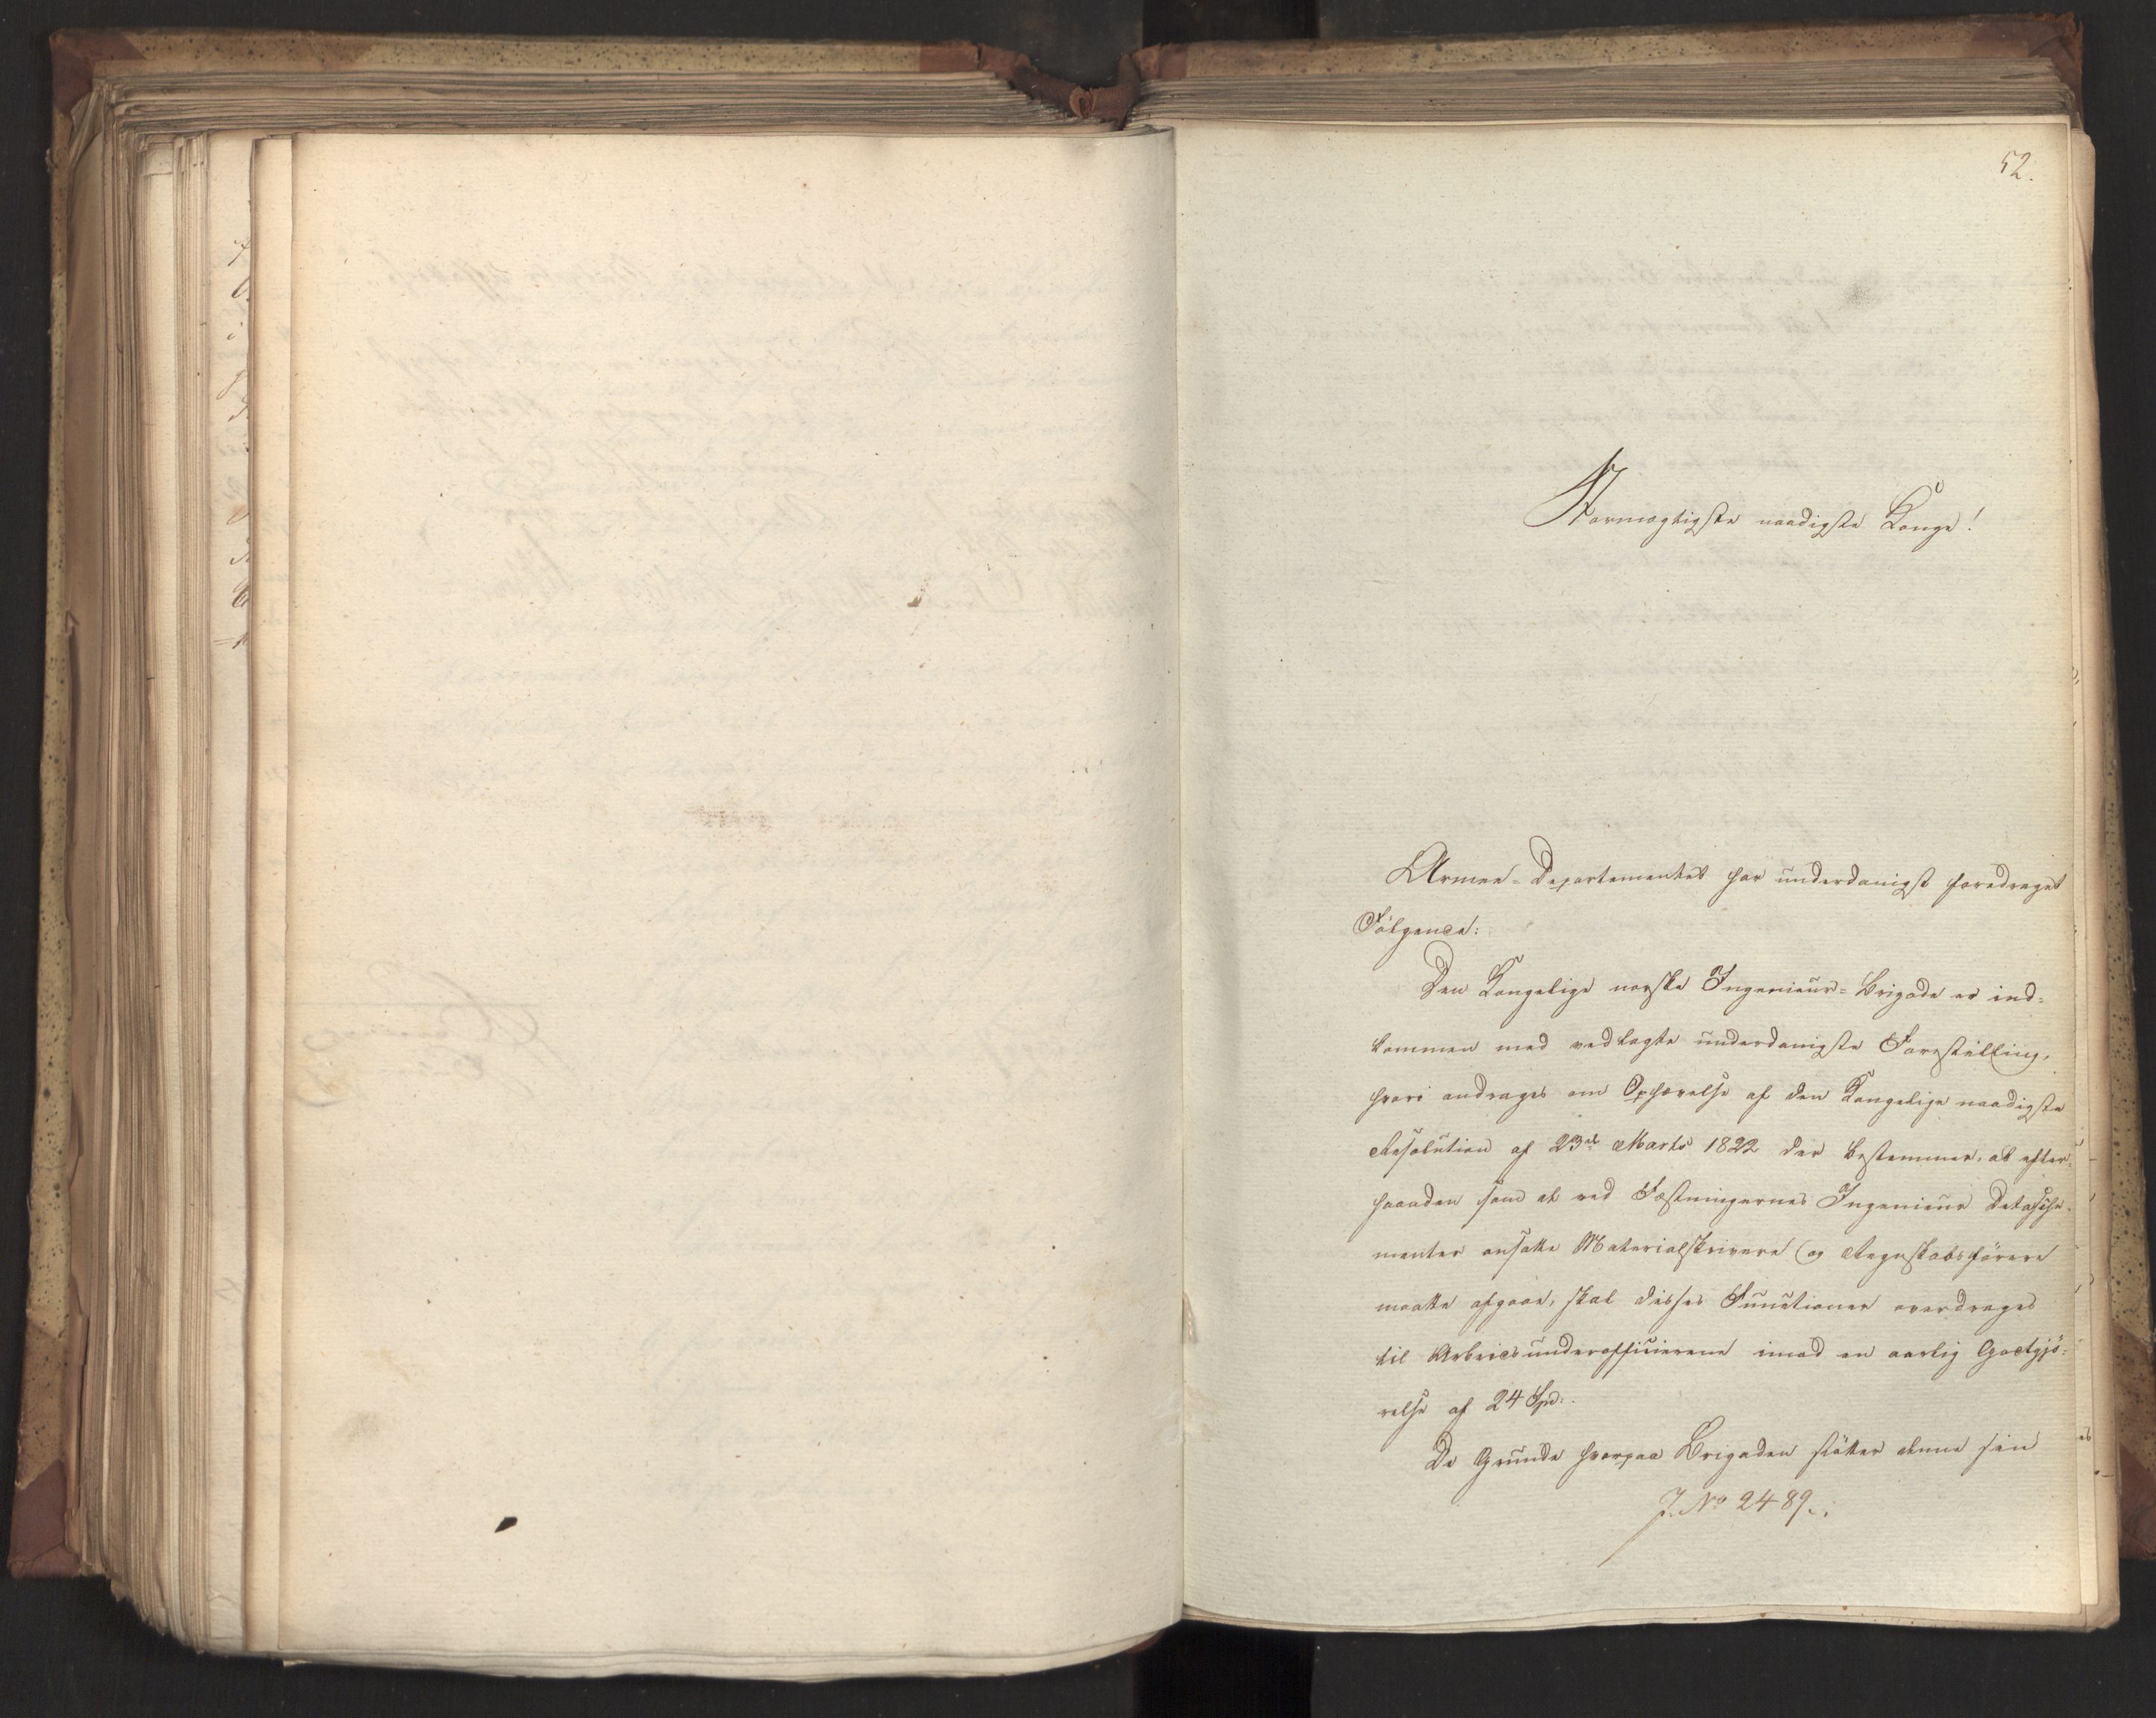 52.
Stormægtigste naadigste Konge!
Armee-Departementet har underdanigst foredraget
Følgende:
Den Kongelige norske Ingenieur-Brigade er ind-
kommen med vedlagte underdanigste Forestilling,
hvori andrages om Ophævelse af den Kongelige naadigste
Resolution af 23de Marts 1822 der bestemmer, at efter-
haanden som de ved Fæstningernes Ingenieur Detasche-
menter ansatte Materialskrivere og Regnskabsførere
maatte afgaae, skal disses Functioner overdrages
til Arbeidsunderofficierene imod en aarlig Godtgjö-
relse af 24 Spd:
De Grunde hvorpaa Brigaden støtter denne sin
J. No 2489.